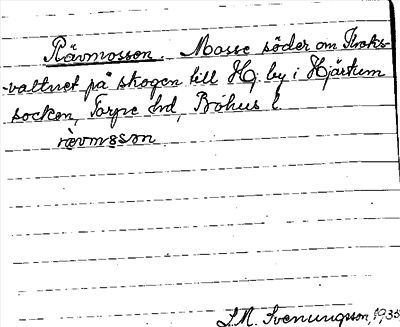 Rävmossen. Mosse söder om Stoks-
-vattnet på skogen till Hj. by i Hjärtum
socken, Torpe hd, Bohus l.
rævmɔsən
S.M. Svenungsson, 1935